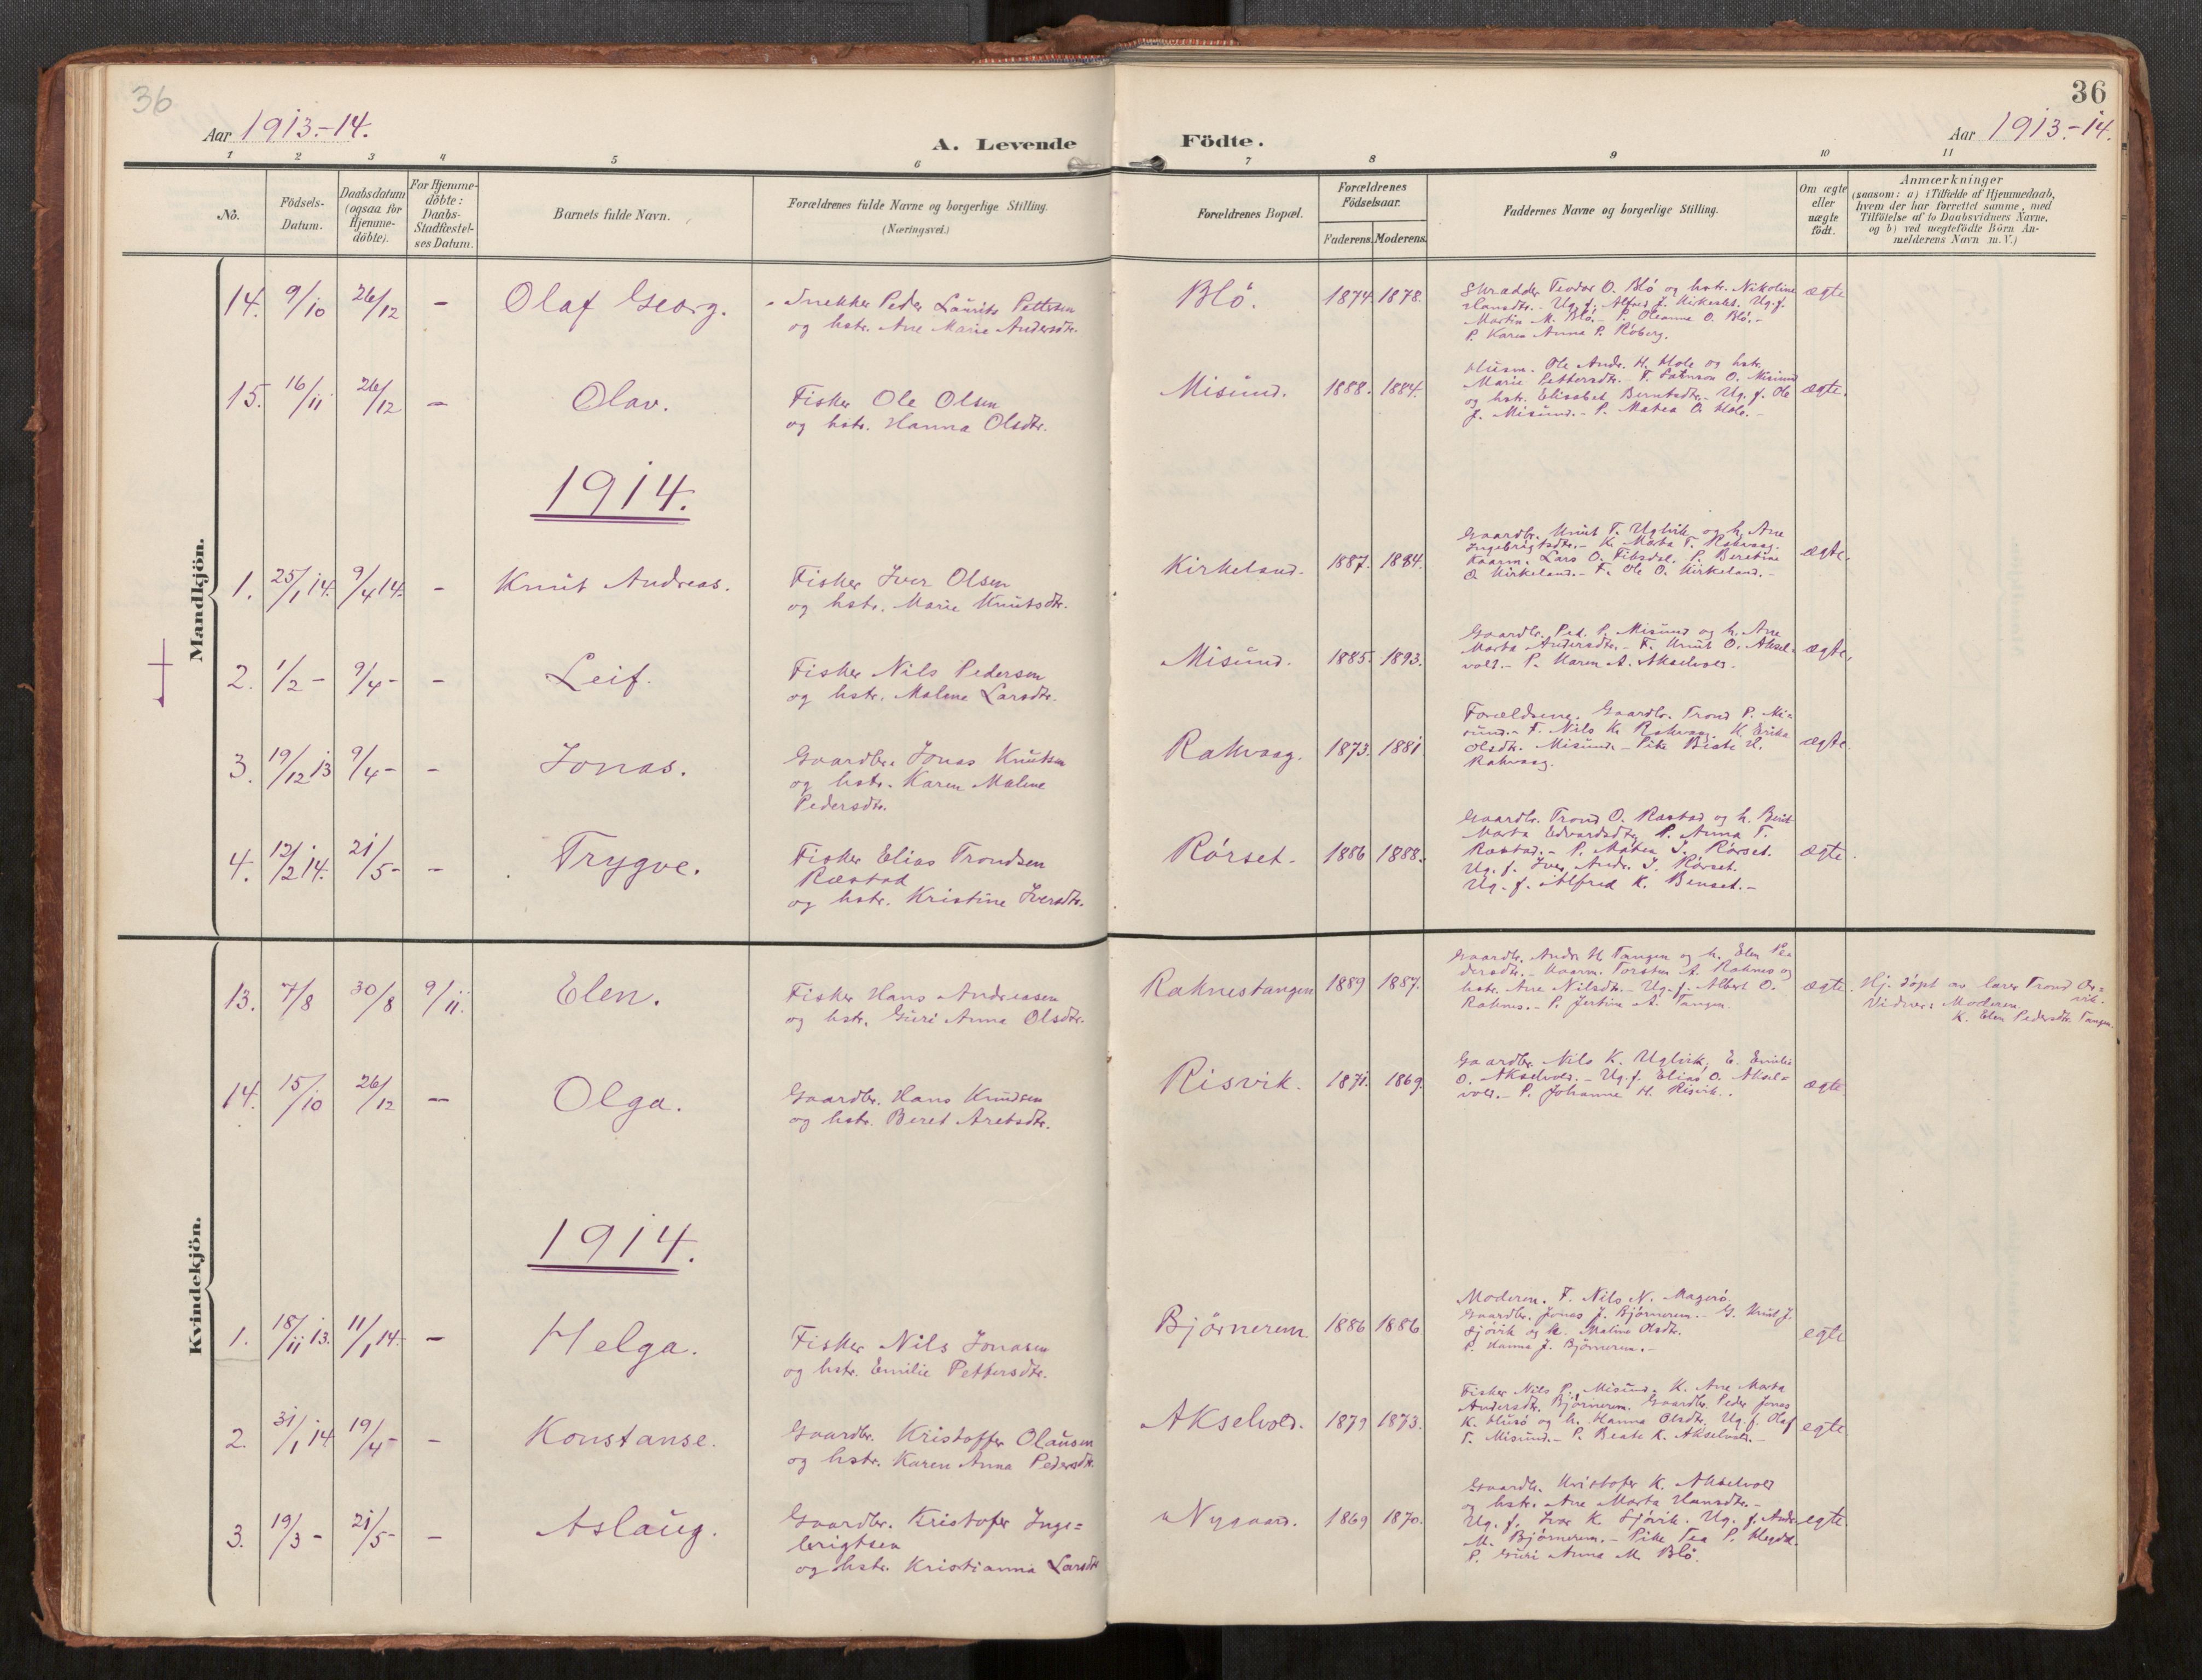 36
36
Aar 1913.-14.
A. Levende Födte.
Aar 1913.-14.
1 2 3 4 5 6 7 8 9 10 11
No.
Födsels-Datum.
Daabsdatum (ogsaa for Hjemme-döbte).
For Hjemme-döbte: Daabs-Stadfæstel-ses Datum.
Barnets fulde Navn.
Forældrenes fulde Navne og borgerlige Stilling.
(Næringsvei.)
Forældrenes Bopæl.
Forældrenes Födselsaar.
Faderens. Moderens.
Faddernes Navne og borgerlige Stilling.
Om ægte eller uægte födt.
Anmærkninger
(saasom: a) i Tilfælde af Hjemmedaab,
hvem der har forrettet samme, med
Tilföielse af to Daabsvidners Navne,
og b) ved uægtefödte Börn An-
melderens Navn m. V.)
Mandkjön.
14. 9/10 26/12 - Olaf Georg.
Snekker Peder Laurits Pettersen
og hstr. Ane Marie Andersdtr.
Blö. 1874. 1878.
Skrædder Teodor O. Blö og hstr. Nikoline
Hansdtr. - Ug. f. Alfred J. Kirkesl. Ug. f.
Martin M. Blö. - P. Oleanna O. Blö. -
P. Karen Anna P. Röberg.
ægte
15. 16/11 26/12 - Olav.
Fisker Ole Olsen
og hstr. Hanna Olsdtr.
Misund. 1888. 1884.
Husm. Ole Andr. H. Hole og hstr.
Marie Pettersdtr. F. O. Misund
og hstr. Elisabet Berntsdtr. - Ug. f. Ole
J. Misund. - P. Matea O. Hole. -
ægte.
1914.
1. 25/1 14. 9/4 14. - Knut Andreas.
Fisker Iver Olsen
og hstr. Marie Knutsdtr.
Kirkeland. 1887. 1884.
Gaardbr. Knut T. Uglvik og h. Ane
Ingebrigtsdtr. - K. Marta T. Rakvaag.
Kaarm. Lars O. P. Beretine
O. Kirkeland. - F. Ole O. Kirkeland. -
ægte.
2. 1/2 - 9/4 - - Leif.
Fisker Nils Pedersen
og hstr. Malene Larsdtr.
Misund. 1885. 1893.
Gaardbr. Ped. P. Misund og h. Ane
Marta Andersdtr. - F. Knut O. Aksel-
vold. - P. Karen A. Akselvold.
ægte.
3. 19/12 13 9/4 - - Jonas.
Gaardbr. Jonas Knutsen
og hstr. Karen Malene
Pedersdtr.
Rakvaag. 1873. 1881.
Forældrene. Gaardbr. Trond P. Mi-
sund. - F. Nils K. Rakvaag. K. Erika
Olsdtr. Misund. - Pike Beate K.
Rakvaag.
ægte.
4. 12/2 14. 21/5 - - Trygve.
Fisker Elias Trondsen
Ræstad
og hstr. Kristine Iversdtr.
Rörset. 1886 1888.
Gaardbr. Trond O. Ræstad og h. Berit
Marta Edvardsdtr. P. Anna T.
Ræstad. - P. Matea I. Rörset.
Ug. f. Iver Andr. I. Rörset.
Ug. f. Alfred K. Benset. -
ægte.
Kvindekjön.
13. 7/8 30/8 9/11. Elen.
Fisker Hans Andreasen
og hstr. Guri Anna Olsdtr.
Raknestangen 1889 1887.
Gaardbr. Andr. H. Tangen og h. Elen Pe-
dersdtr. - Kaarm. Torsten A. Raknes og
hstr. Ane Nilsdtr. - Ug. f. Albert O.
Raknes. - P. Jertine A. Tangen.
ægte.
Hj. döpt av lærer Trond Or-
vik.
Vidner: Moderen.
K. Elen Pedersdtr. Tangen.
14. 15/10 26/12 - Olga.
Gaardbr. Hans Knudsen
og hstr. Beret Aretsdtr.
Risvik. 1871. 1869.
Gaardbr. Nils K. Uglvik, E. Emilie
O. Akselvold. - Ug. f. Elias O. Aksel-
vold. - P. Johanna H. Risvik.
ægte.
1914.
1. 18/11 13. 11/1 14. - Helga.
Fisker Nils Jonasen
og hstr. Emilie Pettersdtr.
Björnerem 1886 1886
Moderen. F. Nils N. Magerö.
Gaardbr. Jonas J. Björnerem. - G. Knut J.
Sjövik og h. Maline Olsdtr.
P. Hanna J. Björnerem. -
egte
2. 31/1 14 19/4 - - Konstanse.
Gaardbr. Kristoffer Olausen
og hstr. Karen Anna Pedersdtr.
Akselvold. 1879 1873.
Fisker Nils P. Misund. K. Ane Marta
Andersdtr. Björnerem. Gaardbr. Peder Jonas
K. Husö og h. Hanna Olsdtr. Ug. f. Olaf
T. Misund. - P. Beate K. Akselvold. -
egte.
3. 19/3 - 21/5 - - Aslaug.
Gaardbr. Kristofer Inge-
brigtsen
og hstr. Kristianna Larsdtr.
Nygaard. 1869 1870.
Gaardbr. Kristofer K. Akselvold
og hstr. Ane Marta Hansdtr. -
Ug. f. Ivar K. Sjövik. Ug. f. Andr.
M. Björnerem. - Pike Tea P. Hegdal.
P. Guri Anna M. Blö.
egte.